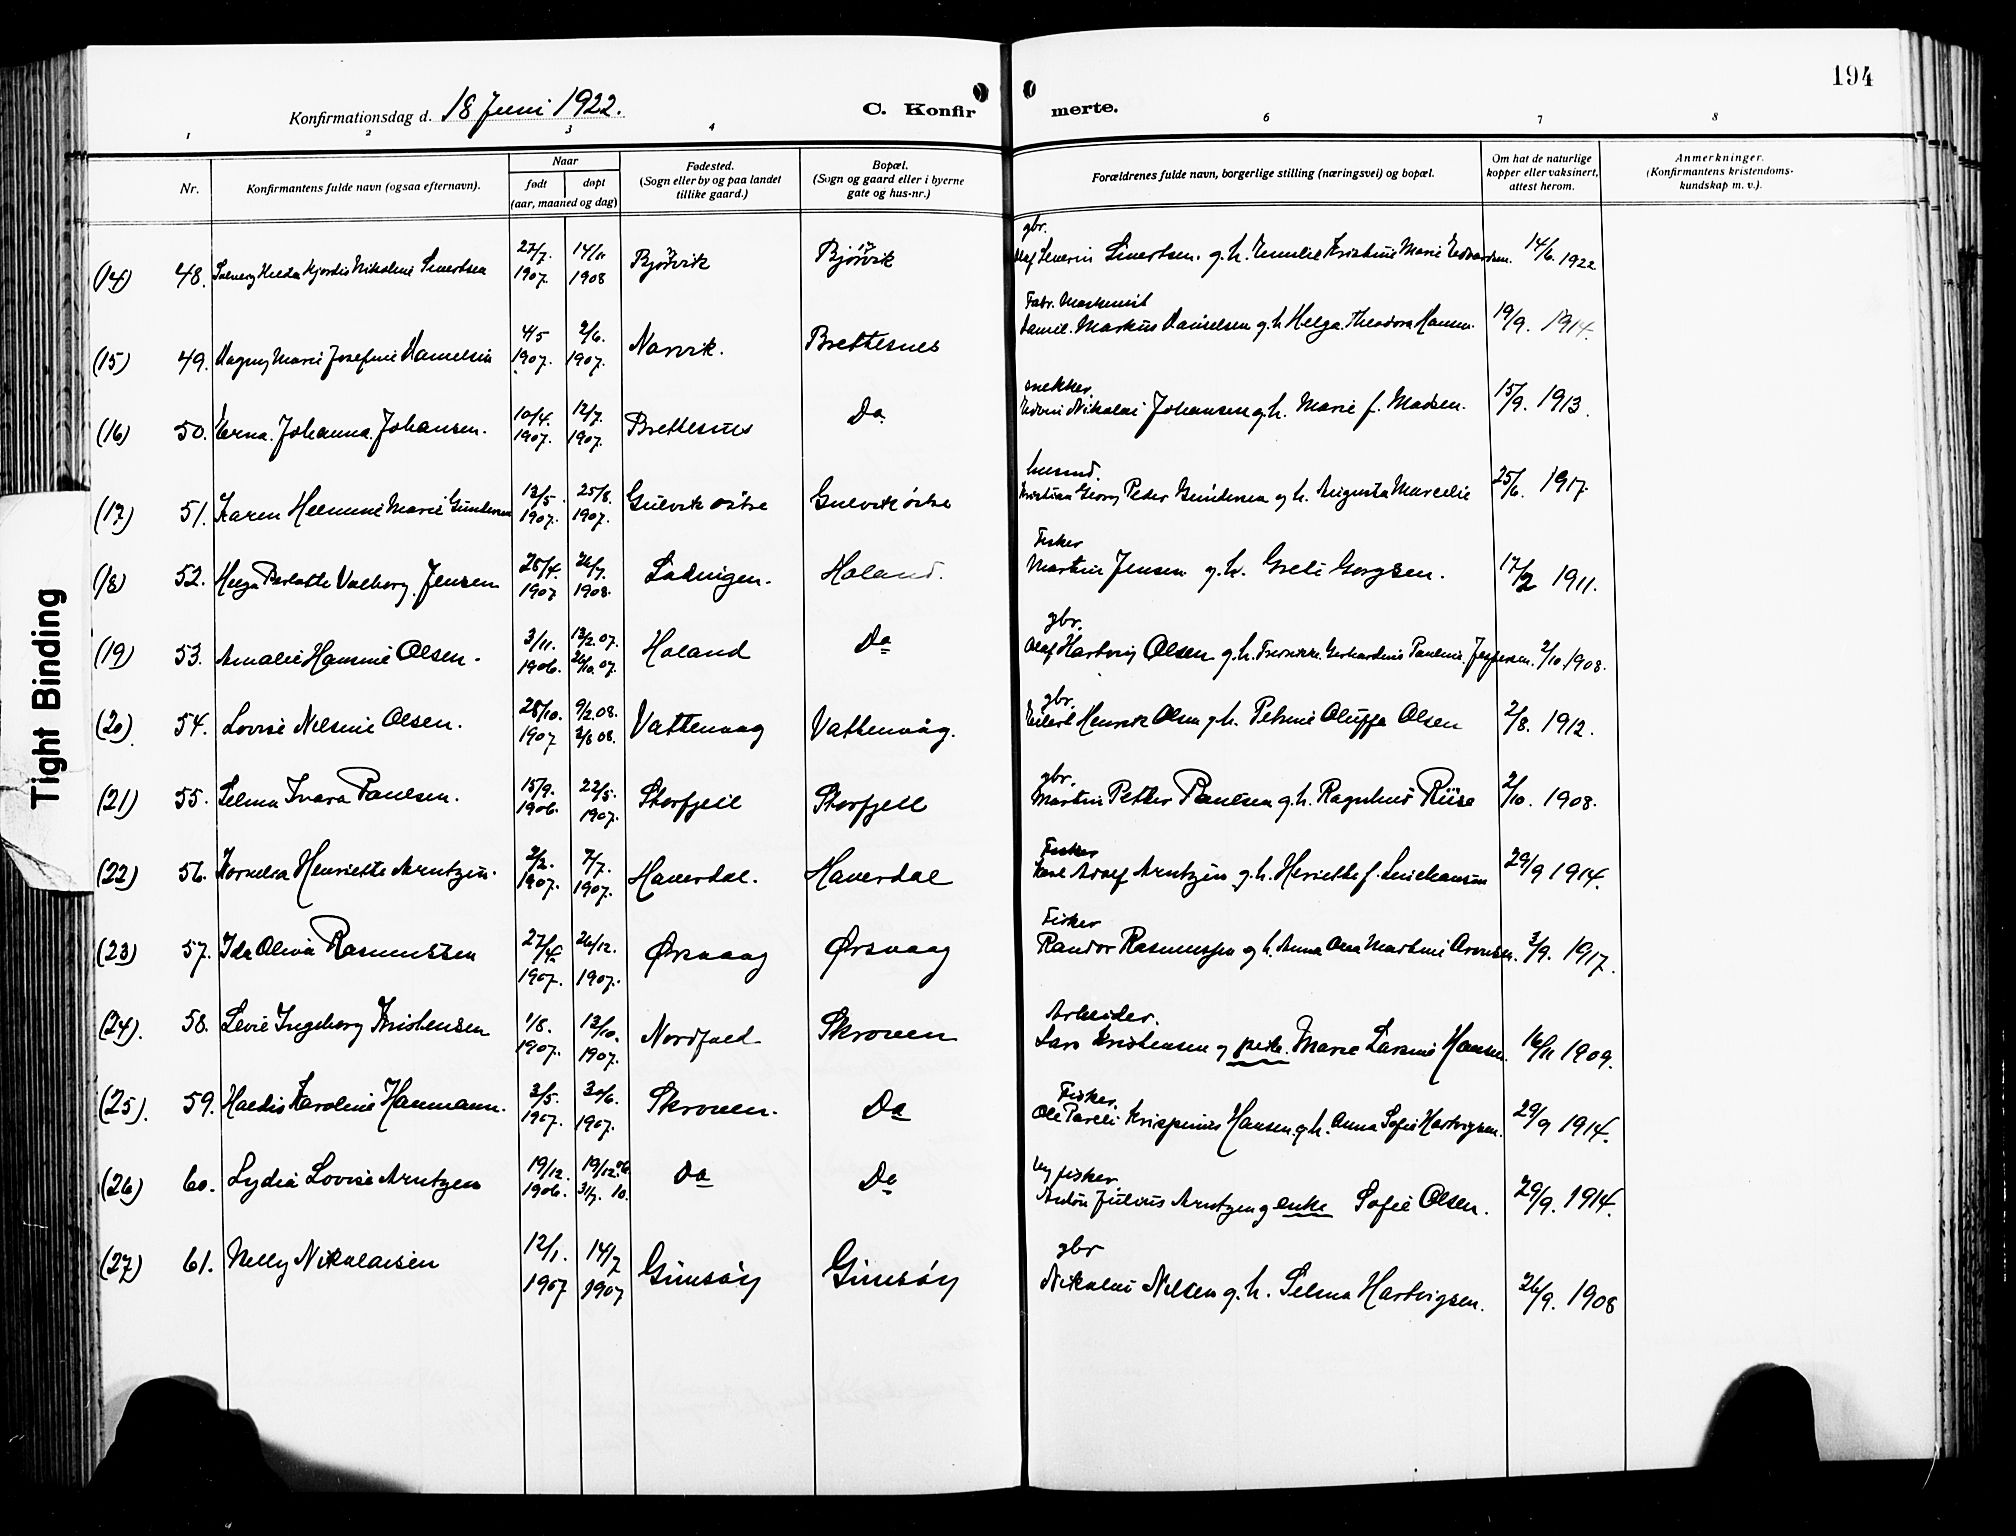 194
Konfirmationsdag d. 18 Juni 1922.
C. Konfirmerte.
1 2 3 4 6 7 8
Nr.
Konfirmantens fulde navn (ogsaa efternavn).
Naar
født døpt
(aar, maaned og dag)
Fødested.
(Sogn eller by og paa landet
tillike gaard.)
Bopæl.
(Sogn og gaard eller i byerne
gate og hus-nr.)
Forældrenes fulde navn, borgerlige stilling (næringsvei) og bopæl.
Om hat de naturlige
kopper eller vaksinert,
attest herom.
Anmerkninger.
(Konfirmantens kristendoms-
kundskap m. v.).
gbr.
(14) 48. Solveig Hilda Hjørdis Nikoline Sivertsen 27/7. 1907. 14/11 1908 Bjørvik Bjørvik Olaf Severin Sivertsen. g. h. Emilie Kristine Marie Edvardsen. 14/6 1922
Fabr. Maskinist
(15) 49. Dagny Marie Josefine Danielsen 4/5 1907. 2/6. 1907. Narvik. Brettesnes Daniel Markus Danielsen g. h Helga Theodora Hansen. 19/9. 1914.
snekker
(16) 50. Erna Johanna Johansen. 10/4. 1907. 12/7. 1907. Brettesnes Do Edvin Nikolai Johansen g. h. Marie f. Madsen. 15/9. 1913.
husmd.
(17) 51. Karen Helmine Marie Gundersen 13/5. 1907. 25/8. 1907. Gulvik østre Gulvik østre Kristian Georg Peder Gundersen g. h. Augusta Marcelie 25/6. 1917.
Fisker
(18) 52. Helga Valborg Jensen 28/4. 1907 26/7. 1908. Lødingen. Holand. Martin Jensen g. h. Greti Gorgsen. 17/2 1911.
gbr.
(19) 53. Amalie Hammine Olsen. 3/11. 1906. 13/2. 07. 26/10. 07. Holand Do Olaf Hartvig Olsen g. h. Fredrikke Gerhardine Pauline Jespersen. 2/10. 1908.
gbr.
(20) 54. Lovise Nelsine Olsen. 28/10. 1907 9/2. 08. 2/8 08. Vattenvaag Vattenvåg. Eilert Henrik Olsen g. h. Petrine Oluffa Olsen 2/8. 1912.
gbr.
(21) 55. Selma Ivara Paulsen. 15/9. 1906. 22/5. 1907. Storfjell Storfjell Martin Petter Paulsen g. h. Ragnhild Riise 2/10. 1908.
Fisker
(22) 56. Kornelia Henriette Arntzen. 2/2. 1907. 7/7. 1907. Haverdal. Haverdal Karl Adolf Arntzen g. h. Henriette f. 29/9 1914.
Fisker
(23) 57. Ida Olivia Rasmussen 27/4. 1907. 26/12. 1907. Ørsvaag Ørsvaag Randor Rasmussen g. h. Anna Martine Arentsen. 3/9. 1917.
Arbeider.
(24). 58. Ingeborg Kristensen 1/8. 1907. 13/10. 1907. Nordfold Skroven Lars Kristensen g. Marie Larsine Hansen. 16/11 1909.
Fisker
(25). 59. Haldis Karoline Hanmann. 3/5. 1907. 30/6. 1907. Skroven. Do Ole Pareli Krispinus Hansen g. h. Anna Sofie Hartvigsen. 29/9 1914.
fisker
(26) 60. Lydia Lovise Arntzen 19/12. 1906. 19/12 06 31/7. 10. Do Do Anton Julius Arntzen g enke Sofie Olsen. 29/9. 1914.
gbr
(27) 61. Nelly Nikolaisen 12/1. 1907 14/7 1907 Gimsøy Gimsøy Nikolai Nilsen g. h. Selma Hartvigsen. 26/9. 1908
Tight Binding